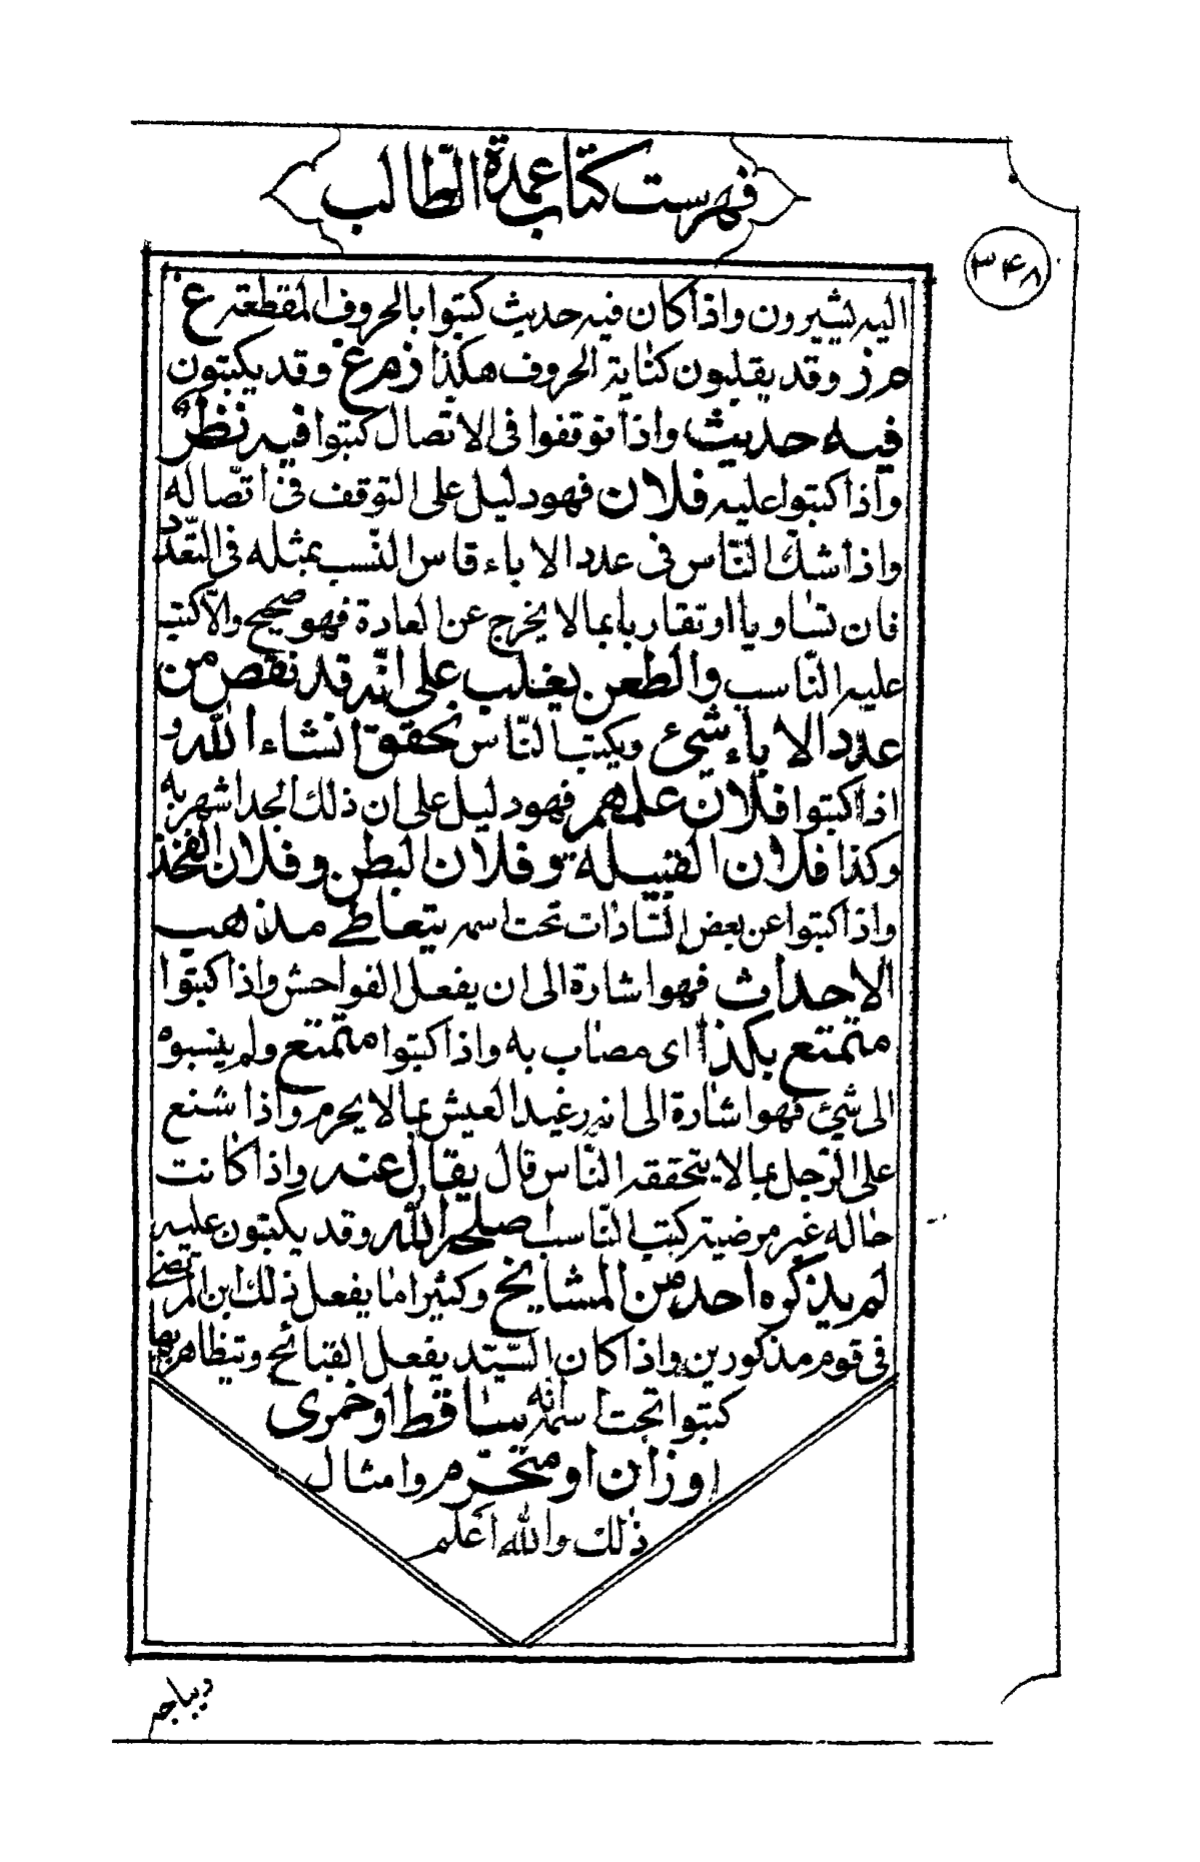 فهرست كتاب عمدة الطالب
٣٤٨
اليه يشيرون واذا كان فيه حديث كتبوا بالحروف المقطعة غ
مرز وقد يقلبون كتابة الحروف هكذا زمرغ وقد يكتبون
فيه حديث واذا توقفوا فى الاتصال كتبوا فيه نظر
واذا كتبوا عليه فلان فهو دليل على التوقف فى اتّصاله
واذا شكّ النّاس فى عدد الاباء قاس النّسب بمثله فى التّعدّد
فان تساويا او تقاربا بما لا يخرج عن العادة فهو صحيح والّا كتب
عليه النّاسب والطعن يغلب على انّه قد نقص من
عدد الاباء شيئ ويكتب النّاس تحقق انشاء الله و
اذا كتبوا فلان علمهم فهو دليل على ان ذلك الجد اشهر به
وكذا فلان القبيلة وفلان البطن وفلان الفخذ
واذا كتبوا عن بعض السّادات تحت اسمه يتعاطى مذهب
الاحداث فهو اشارة الى ان يفعل الفواحش واذا كتبوا
متمتع بكذا اى مصاب به واذا كتبوا متمتع ولم ينسبوه
الى شيئ فهو اشارة الى انه رغيد العيش بما لا يحرم واذا شنع
على الرّجل بما لا يتحققه النّاس قال يقال عنه واذا كانت
حاله غير مرضية كتب النّاسب اصلحه الله وقد يكتبون عليه
لم يذكره احد من المشايخ وكثيرا ما يفعل ذلك ابن المرتضى
فى قوم مذكورين واذا كان السّيّد يفعل القبائح ويتظاهر بها
كتبوا تحت اسمه انه ساقط او خمرى
او زان او متخرّم وامثال
ذلك والله اعلم
ديباجه